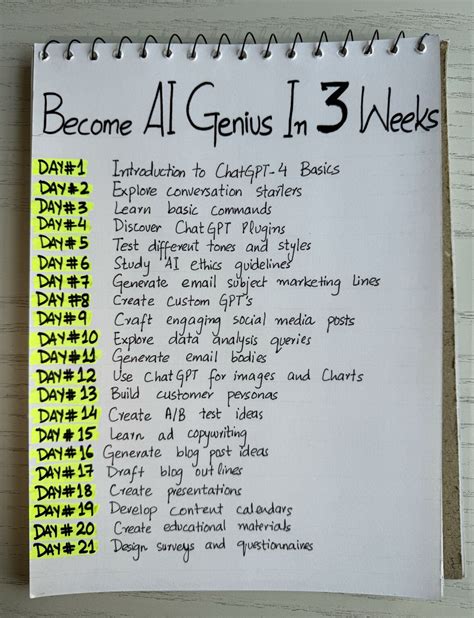 Become AI Genius In 3 Weeks
DAY#1 Introduction to ChatGPT-4 Basics
DAY#2 Explore conversation starters
DAY#3 Learn basic commands
DAY#4 Discover ChatGPT Plugins
DAY#5 Test different tones and styles
DAY#6 Study AI ethics guidelines
DAY#7 Generate email subject marketing lines
DAY#8 Create custom GPT's
DAY#9 Craft engaging social media posts
DAY#10 Explore data analysis queries
DAY#11 Generate email bodies
DAY#12 Use ChatGPT for images and Charts
DAY#13 Build customer personas
DAY#14 Create A/B test ideas
DAY#15 Learn ad copywriting
DAY#16 Generate blog post ideas
DAY#17 Draft blog outlines
DAY#18 Create presentations
DAY#19 Develop content calendars
DAY#20 Create educational materials
DAY#21 Design surveys and questionnaires